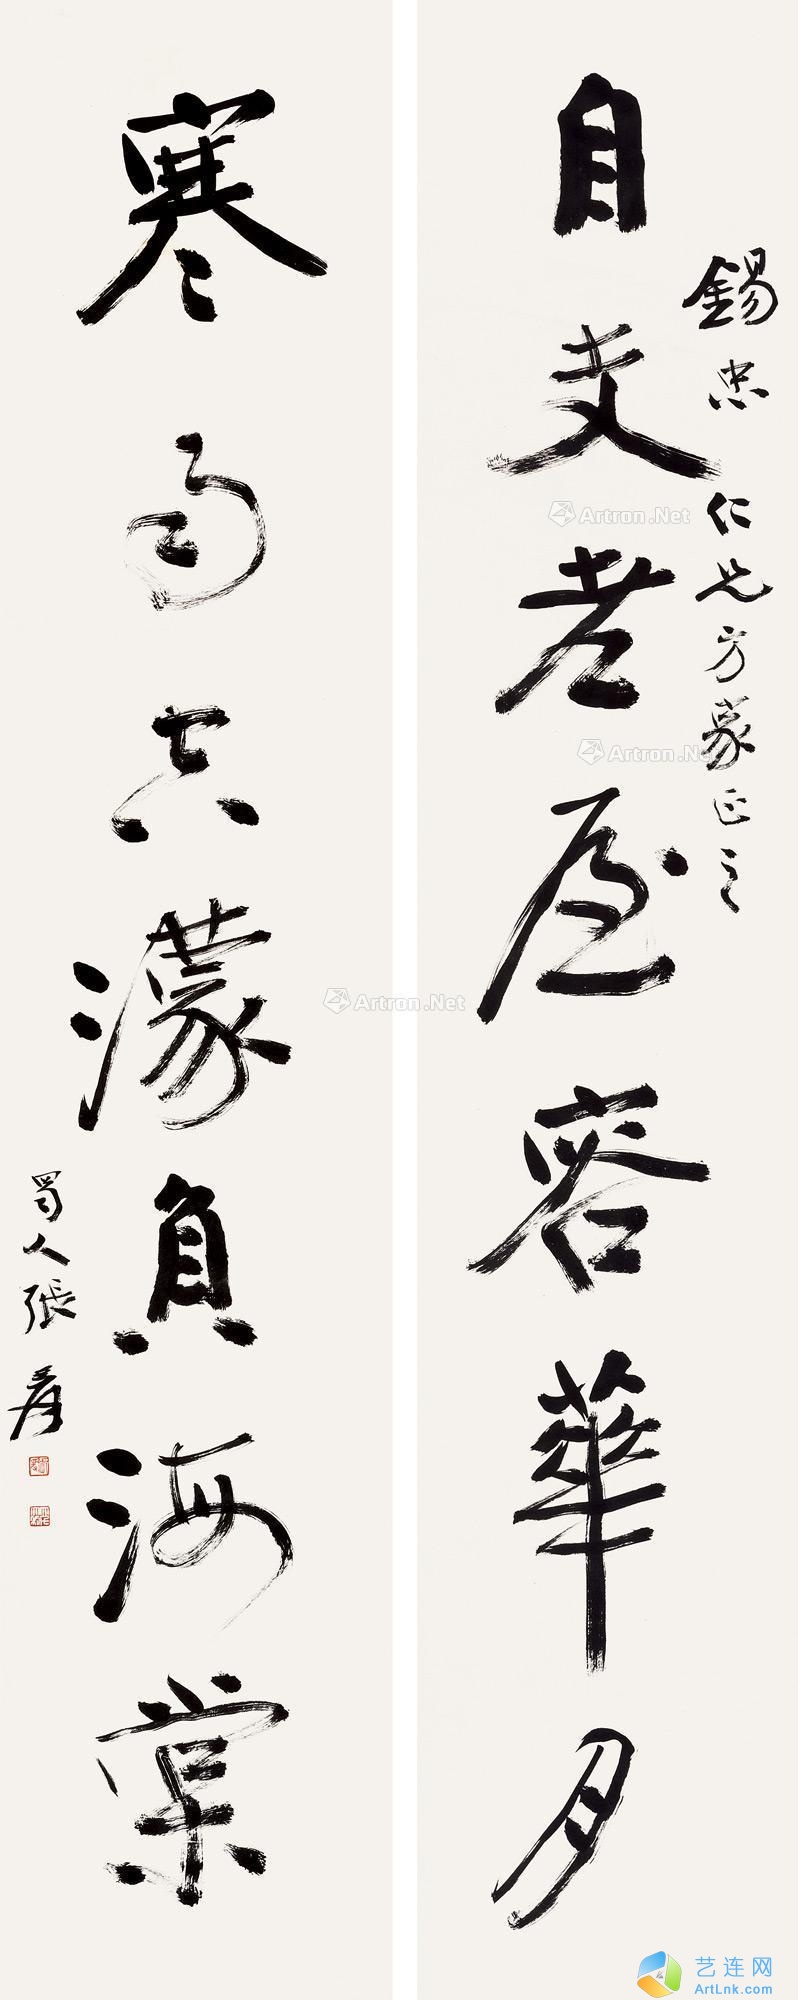 錫忠仁兄方家正之
自支老屋容華月
寒雨空濛負海棠
蜀人張爰
Artron.Net
Artron.Net
Artron.Net
艺连网
ArtLnk.com